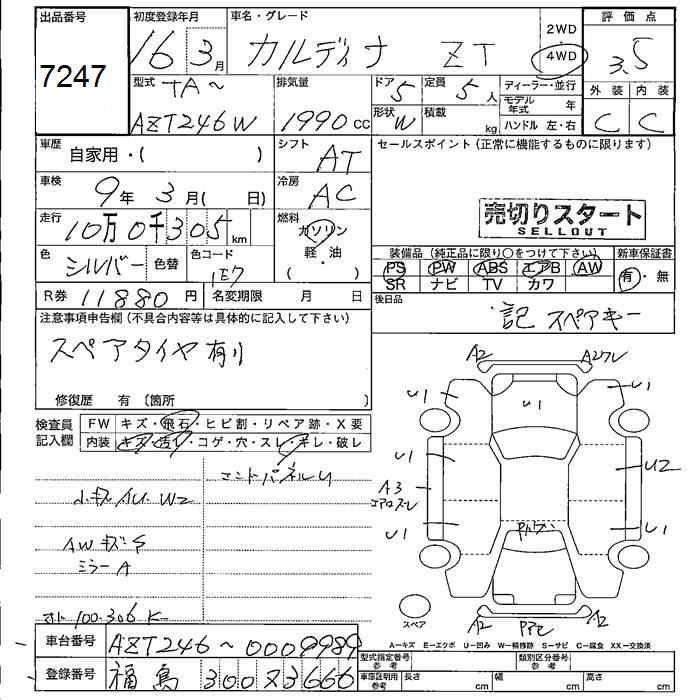 出品番号 7247
初度登録年月 16 3月
車名・グレード カルディナ ZT
2WD
4WD
評価点 3.5
外装 内装
C C
型式 TA~
AZT246W
排気量 1990cc
ドア 5 定員 5人
形状 W 積載 kg
ディーラー・並行
モデル年式 年
ハンドル 左・右
車歴 自家用・( )
シフト AT
セールスポイント(正常に機能するものに限ります)
車検 9年 3月( 日)
冷房 AC
売切りスタート
SELLOUT
走行 10万0千305km
燃料 ガソリン
軽・油
( ・ )
色 シルバー 色替 色コード 1E7
装備品(純正品に限り〇をつけて下さい) 新車保証書
PS PW ABS エアB AW 有・無
SR ナビ TV カワ
R券 11880円 名変期限 月 日
後日品 記 スペアキー
注意事項申告欄(不具合内容等は具体的に記入して下さい)
スペアタイヤ有り
修復歴 有(箇所
検査員記入欄
FW キズ・飛石・ヒビ割・リペア跡・X要
内装 キズ・汚れ・コゲ・穴・スレ・キレ・破レ
エンドパネルU
小キズ AU W2
AWキズS
ミラーA
100.306K
A2
U1 U1 U1
U1 U2
A3
U1 U1
A2 A2
スペア
A=キズ E=エクボ U=凹み W=補修跡 S=サビ C=腐食 XX=交換済
車台番号 AZT246~0009989
型式指定番号 参考 類別区分番号 参考
登録番号 福島 300 ヌ 3666
車庫証明用 参考 長さ cm 幅 cm 高さ cm